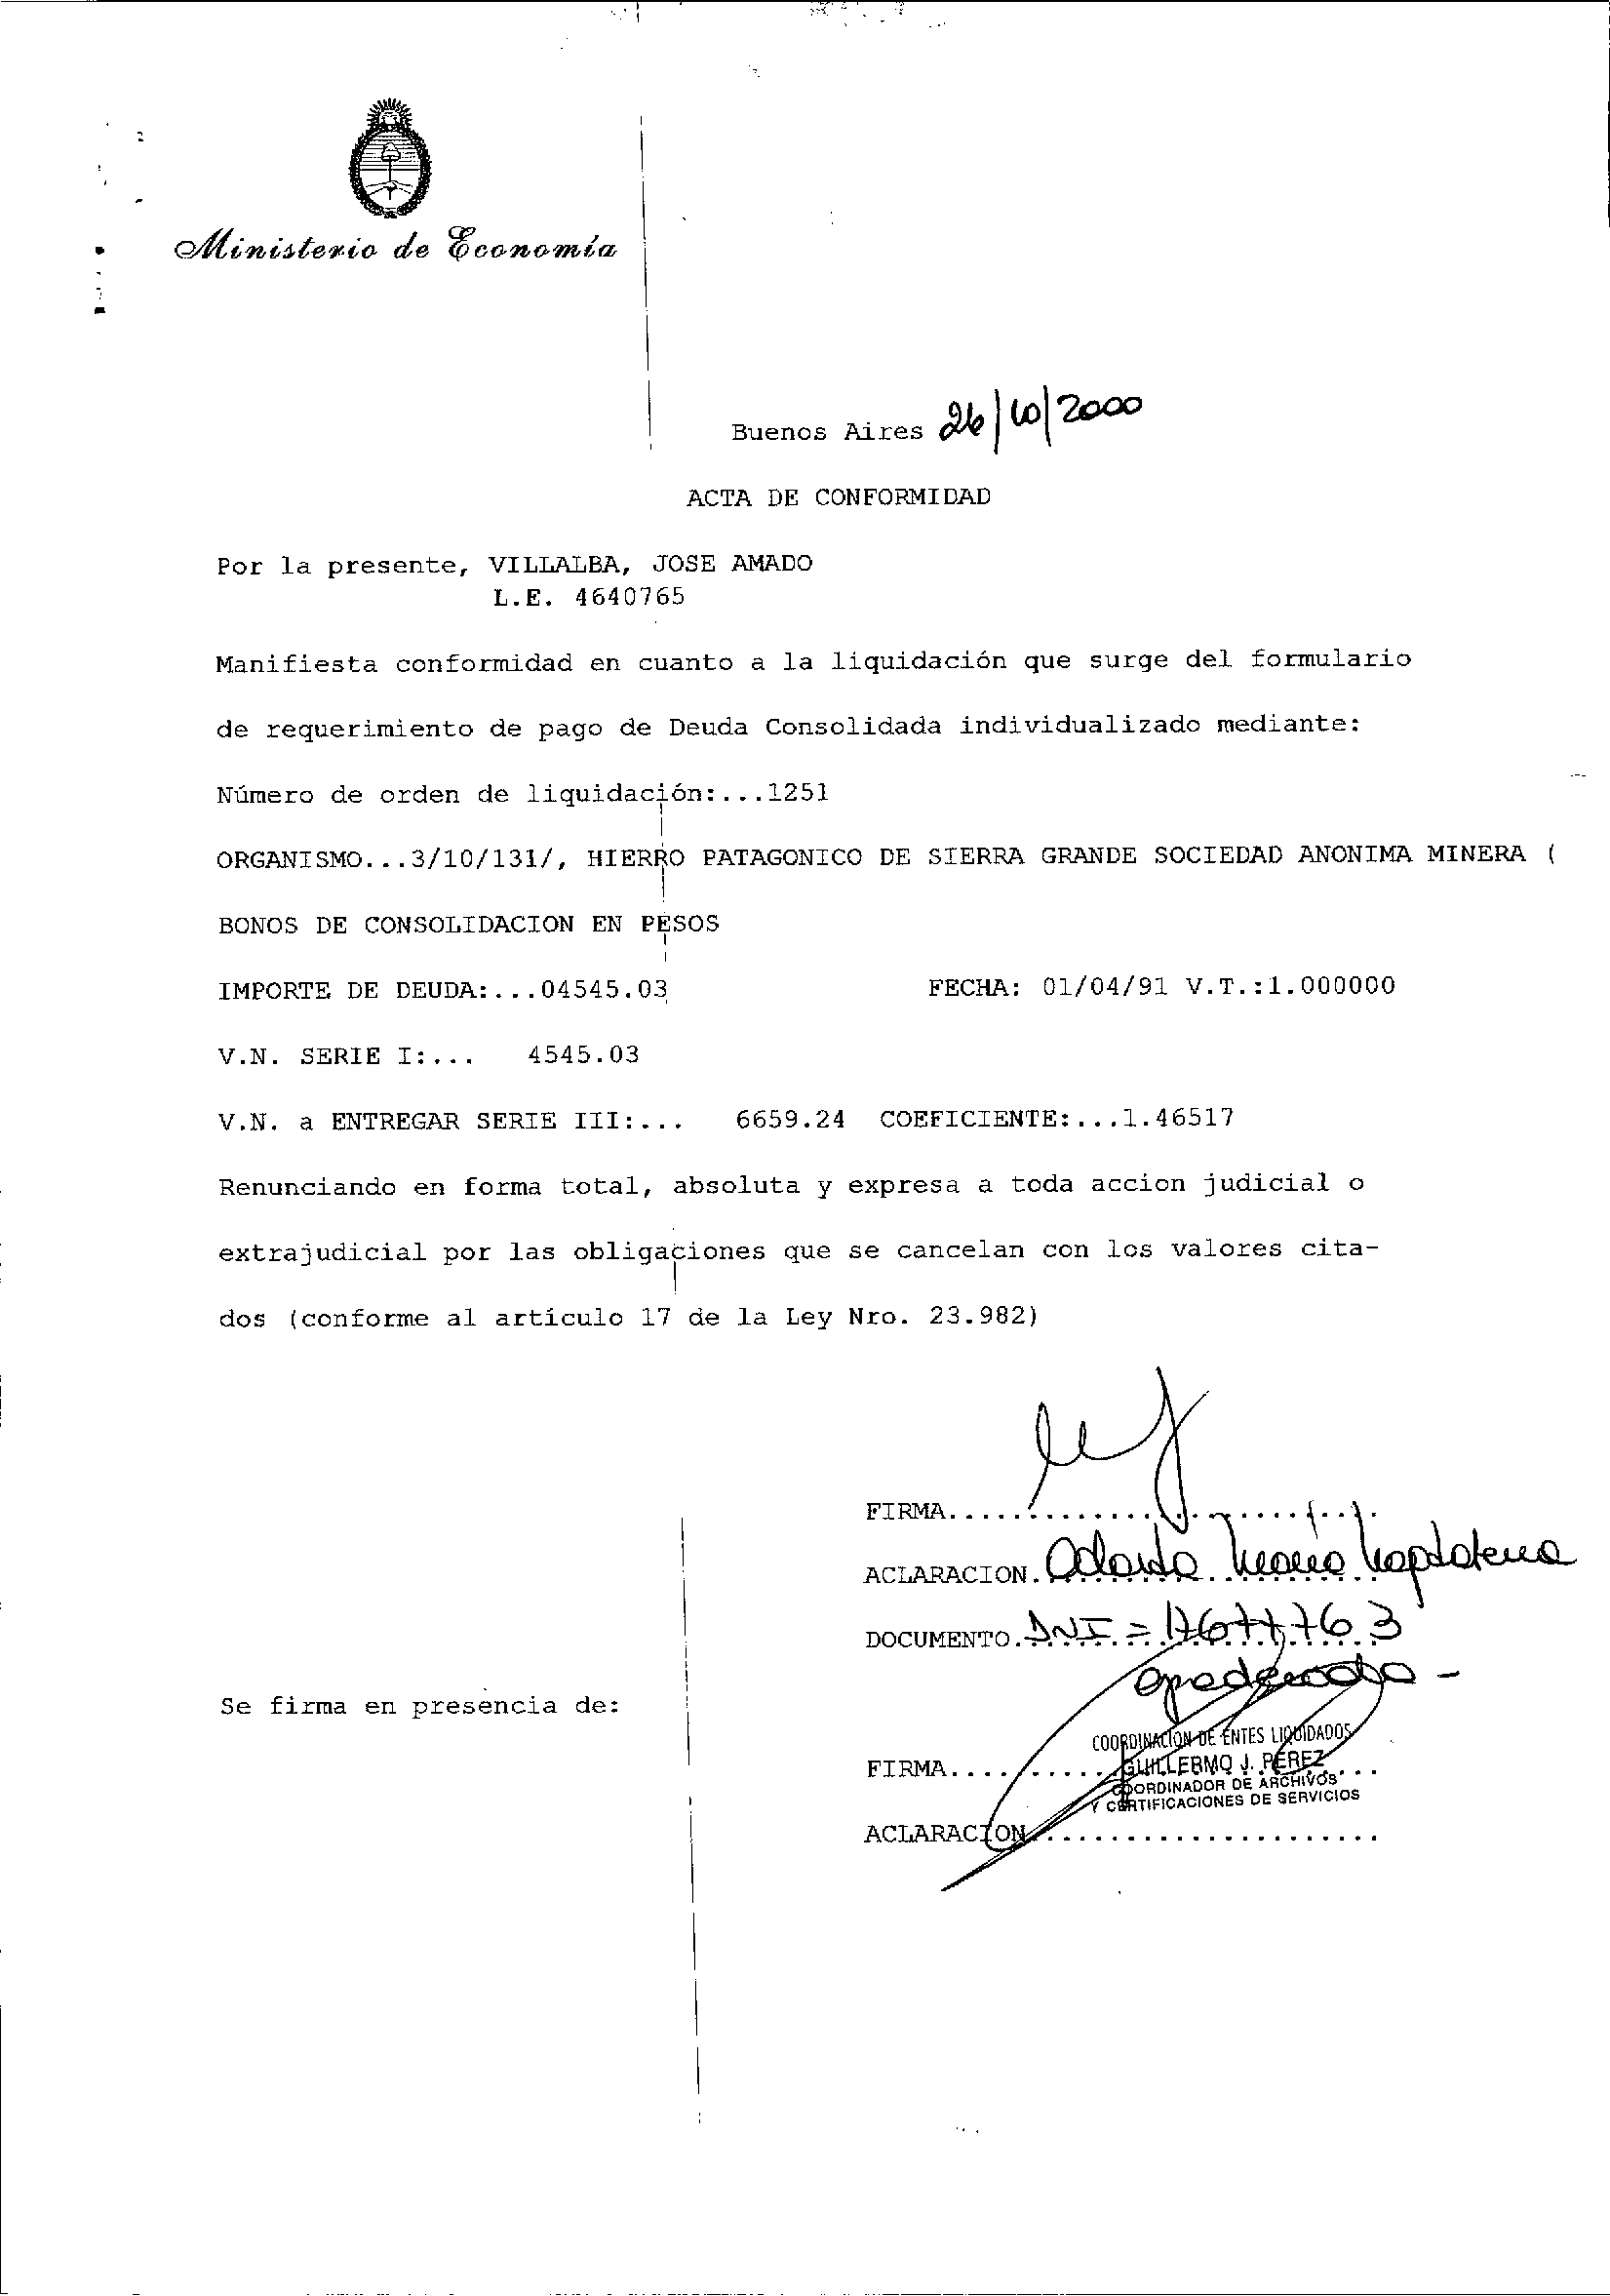 Ministerio de Economía
Buenos Aires 26/10/2000
ACTA DE CONFORMIDAD
Por la presente, VILLALBA, JOSE AMADO
L.E. 4640765
Manifiesta conformidad en cuanto a la liquidación que surge del formulario
de requerimiento de pago de Deuda Consolidada individualizado mediante:
Número de orden de liquidación:...1251
ORGANISMO...3/10/131/, HIERRO PATAGONICO DE SIERRA GRANDE SOCIEDAD ANONIMA MINERA (
BONOS DE CONSOLIDACION EN PESOS
IMPORTE DE DEUDA:...04545.03 FECHA: 01/04/91 V.T.:1.000000
V.N. SERIE I:... 4545.03
V.N. a ENTREGAR SERIE III:... 6659.24 COEFICIENTE:...1.46517
Renunciando en forma total, absoluta y expresa a toda accion judicial o
extrajudicial por las obligaciones que se cancelan con los valores cita-
dos (conforme al artículo 17 de la Ley Nro. 23.982)
FIRMA
ACLARACION. María Magdalena
DOCUMENTO. DNI = 17677763
apoderada -
Se firma en presencia de:
COORDINACION DE ENTES LIQUIDADOS
FIRMA.... GUILLERMO J. PEREZ
COORDINADOR DE ARCHIVOS
Y CERTIFICACIONES DE SERVICIOS
ACLARACION